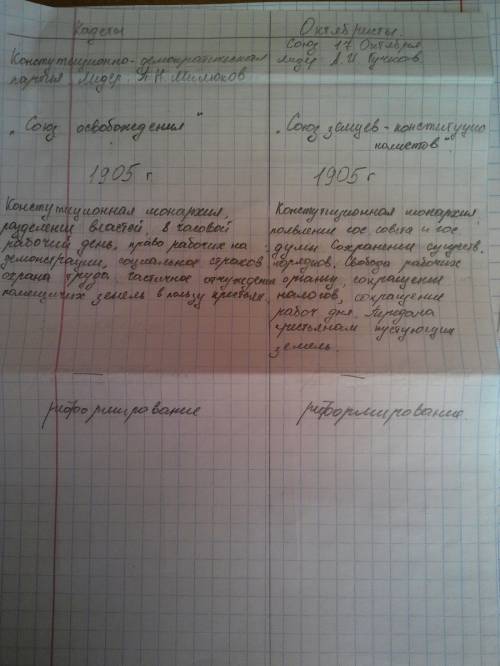 Кадеты
Конституционно-демократическая
партия Лидер П.Н. Милюков
"Союз освобождения"
1905 г
Конституционная монархия,
разделении властей, 8 часовой
рабочий день, право рабочих на
демонстрации, социальное страхов
охрана труда. частичное отчужден
помещичих земель в пользу крестьян.
реформирование
Октябристы.
Союз 17 Октября
лидер А.И. Гучков
"Союз земцев-конституцио
налистов"
1905 г.
Конституционная монархия,
появление гос. совета и гос
думы. Сохранение существ.
порядков. Свобода рабочих
организ, сокращении
налогов, сокращение
рабоч дня. Передача
крестьянам пустующих
земель.
реформирование.